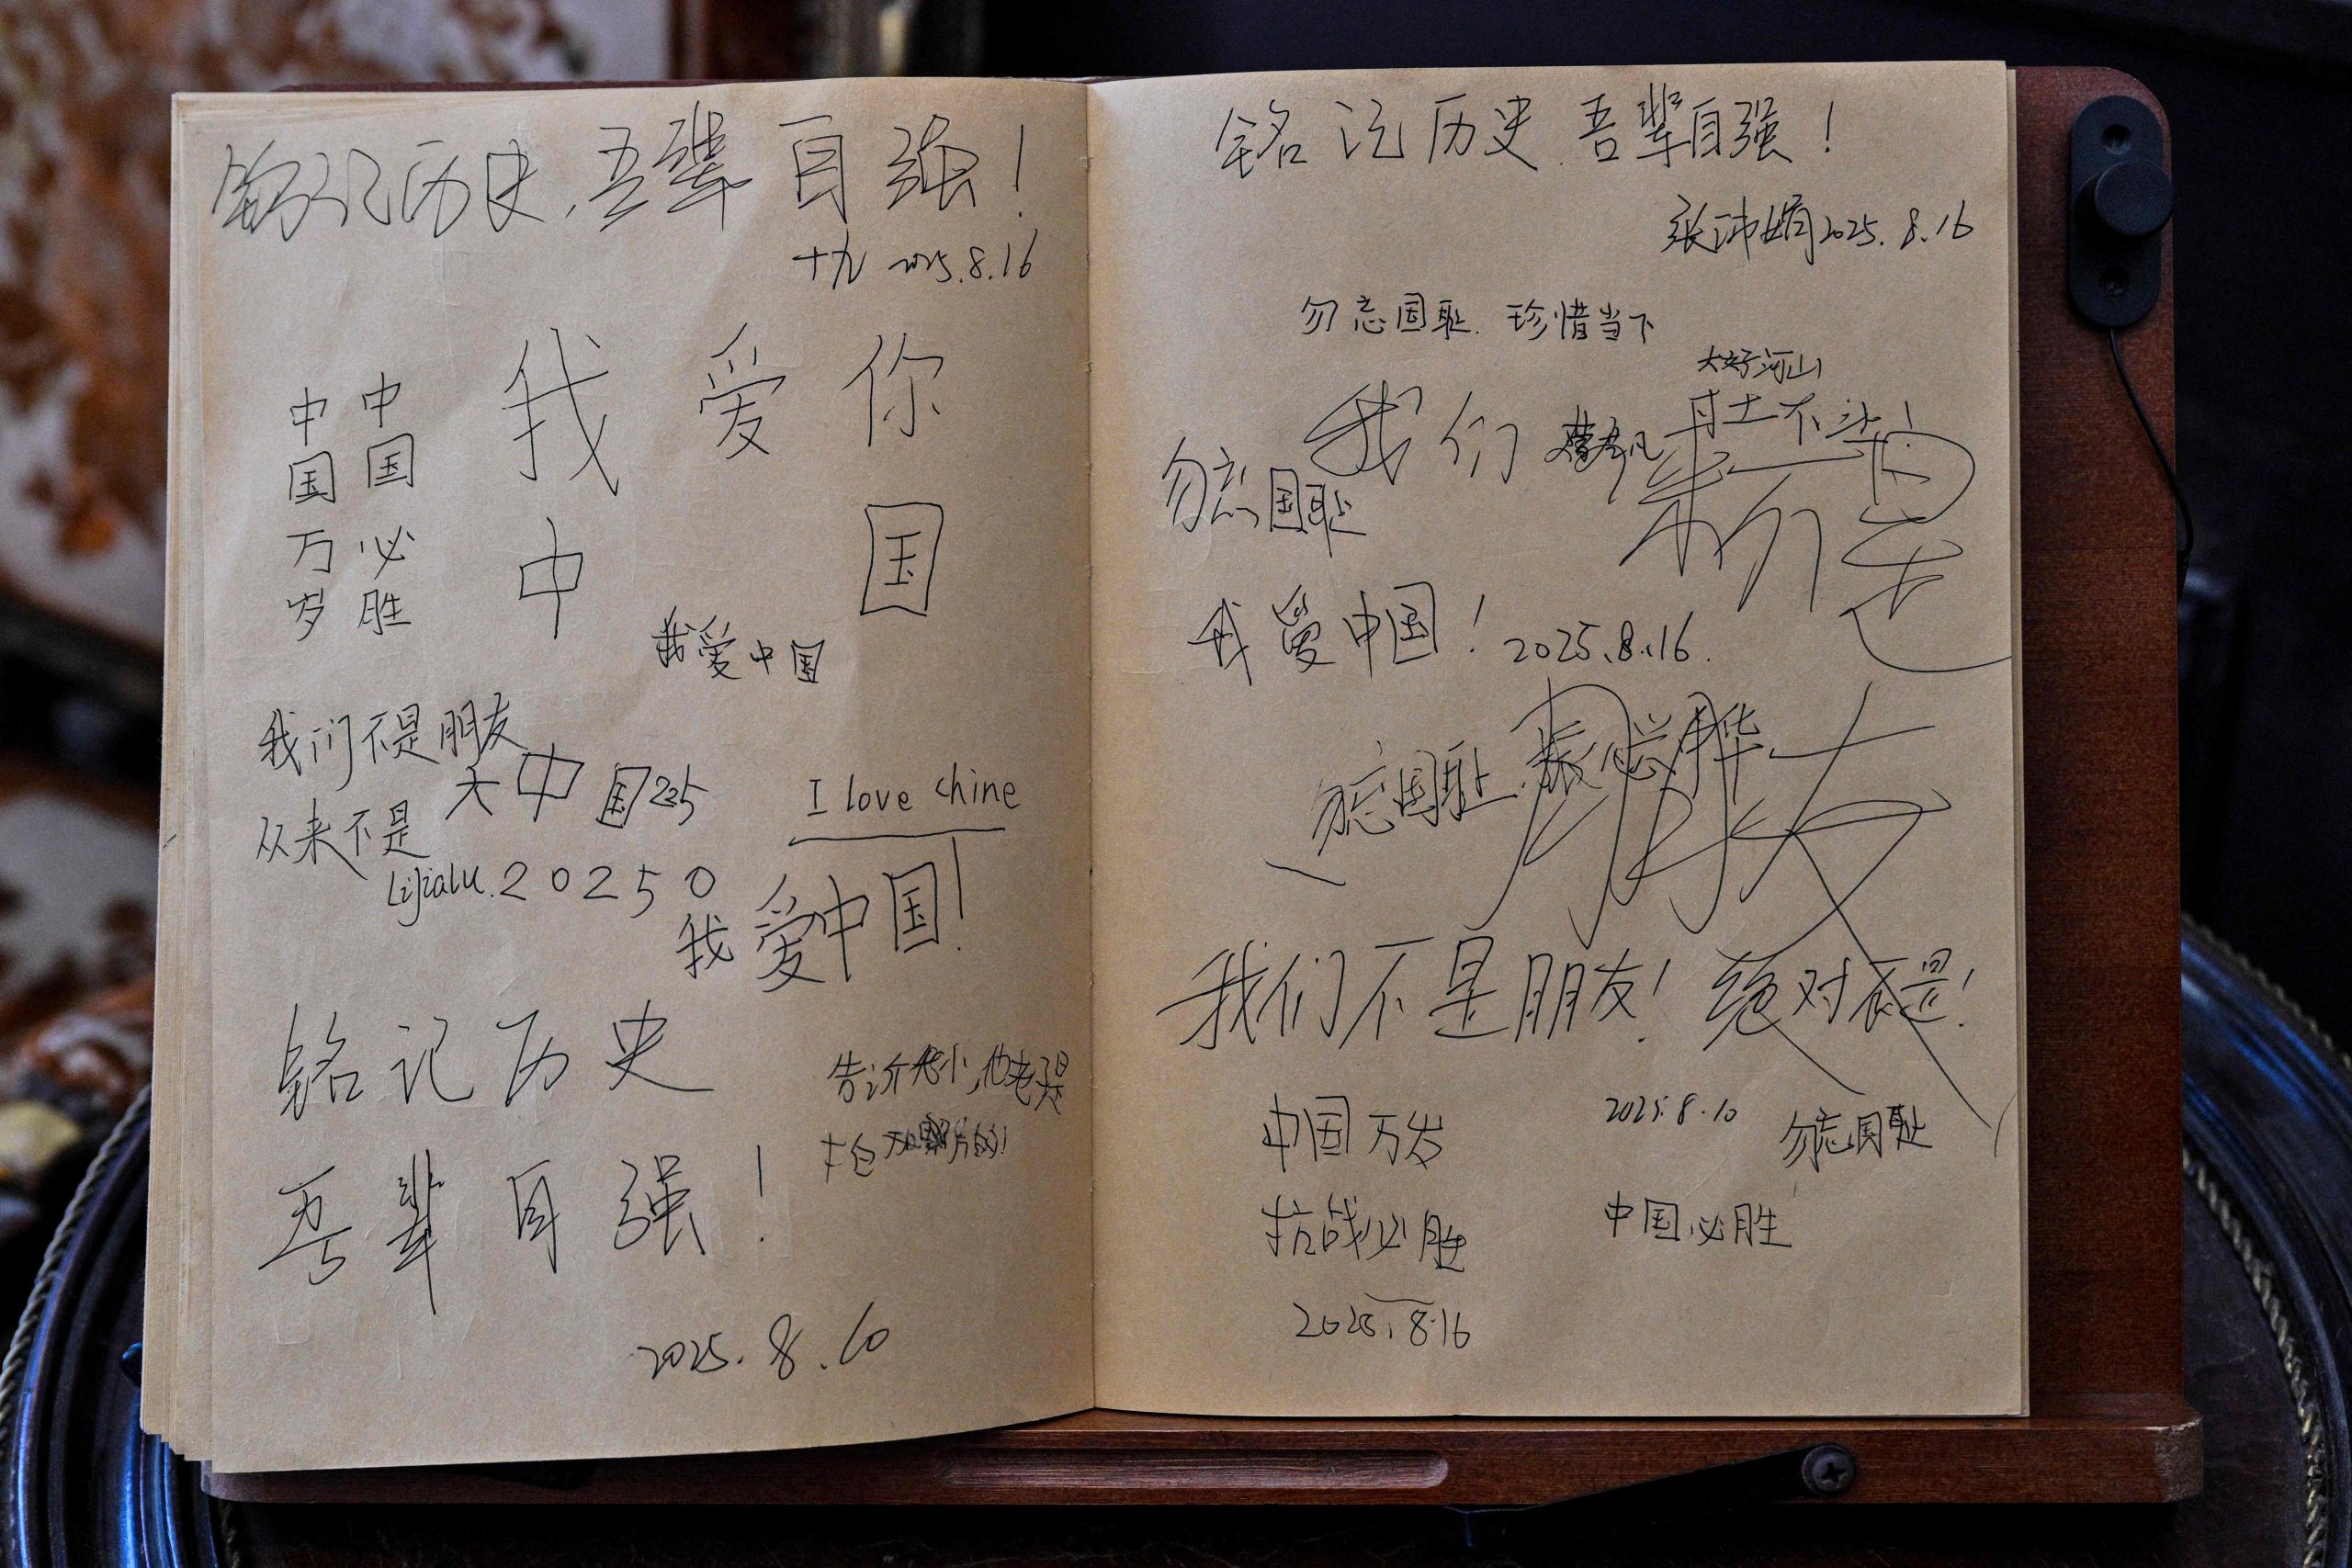 铭记历史,吾辈自强!
十九 2025.8.16
中国必胜
中国万岁
我爱你
中国
我爱中国
我们不是朋友
从来不是
大中国 225
I love chine
Lijialu. 20250
我爱中国!
铭记历史
吾辈自强!
告诉
2025.8.10
铭记历史.吾辈自强!
2025.8.16
勿忘国耻.珍惜当下
大好河山
寸土不让!
我们
勿忘国耻
我爱中国! 2025.8.16.
勿忘国耻
朋友
我们不是朋友!绝对不是!
中国万岁
抗战必胜
2025.8.16
2025.8.10
勿忘国耻
中国必胜